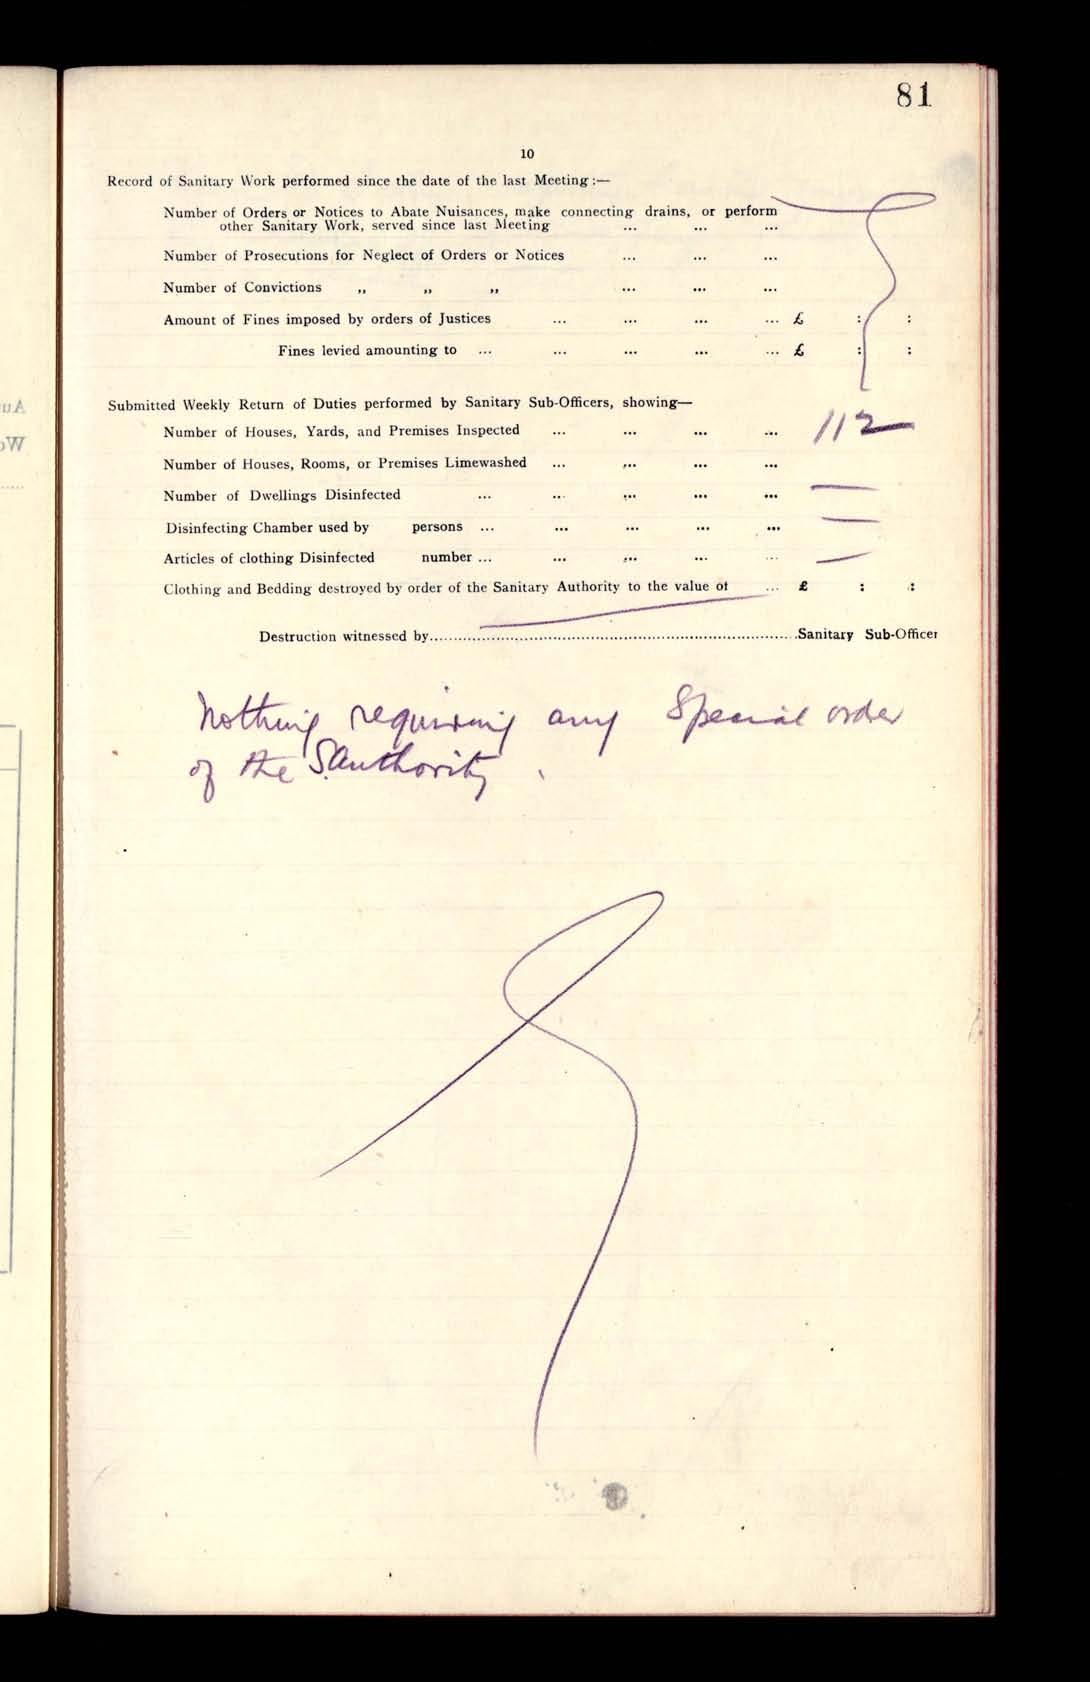 81
10
Record of Sanitary Work performed since the date of the last Meeting :—
Number of Orders or Notices to Abate Nuisances, make connecting drains, or perform
other Sanitary Work, served since last Meeting ... ... ...
Number of Prosecutions for Neglect of Orders or Notices ... ... ...
Number of Convictions ,, ,, ,, ... ... ...
Amount of Fines imposed by orders of Justices ... ... ... ... £ : :
Fines levied amounting to ... ... ... ... ... £ : :
Submitted Weekly Return of Duties performed by Sanitary Sub-Officers, showing—
Number of Houses, Yards, and Premises Inspected ... ... ... ... 112
Number of Houses, Rooms, or Premises Limewashed ... ... ... ...
Number of Dwellings Disinfected ... ... ... ... ... —
Disinfecting Chamber used by persons ... ... ... ... ... —
Articles of clothing Disinfected number ... ... ... ... ... —
Clothing and Bedding destroyed by order of the Sanitary Authority to the value of ... £ : :
Destruction witnessed by.......................................Sanitary Sub-Officer
Nothing requiring any Special order
of the S. Authority.
uA
oW